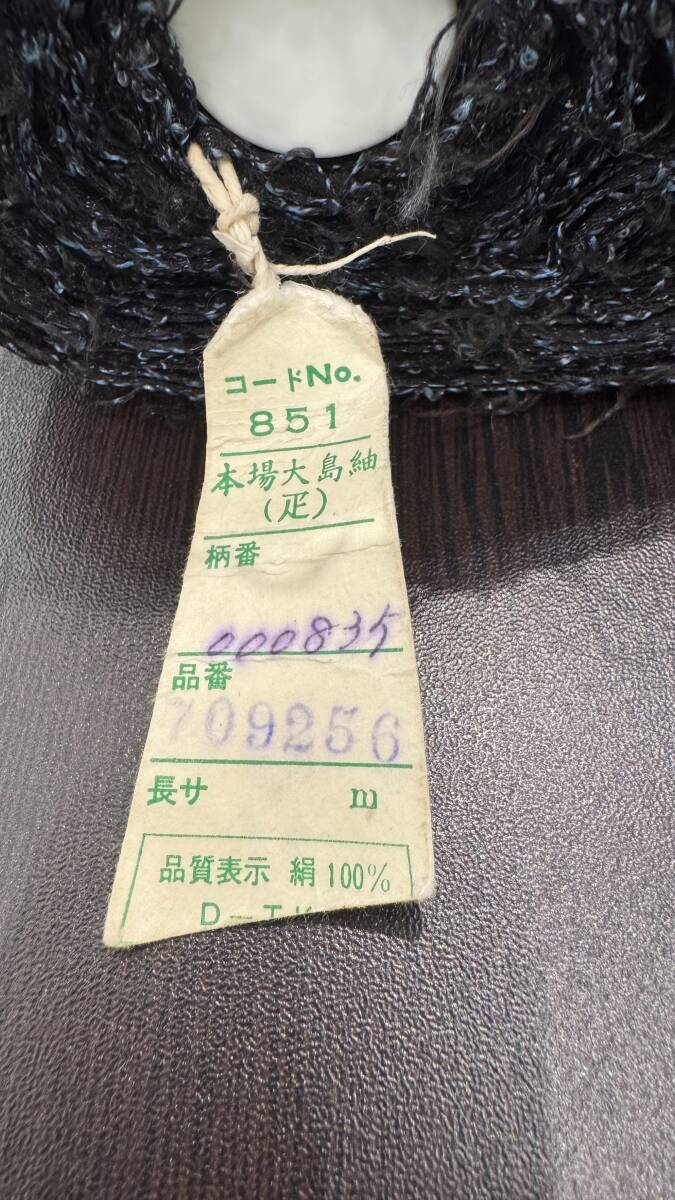 コードNo.
851
本場大島紬
(疋)
柄番
000835
品番
709256
長サ m
品質表示 絹100%